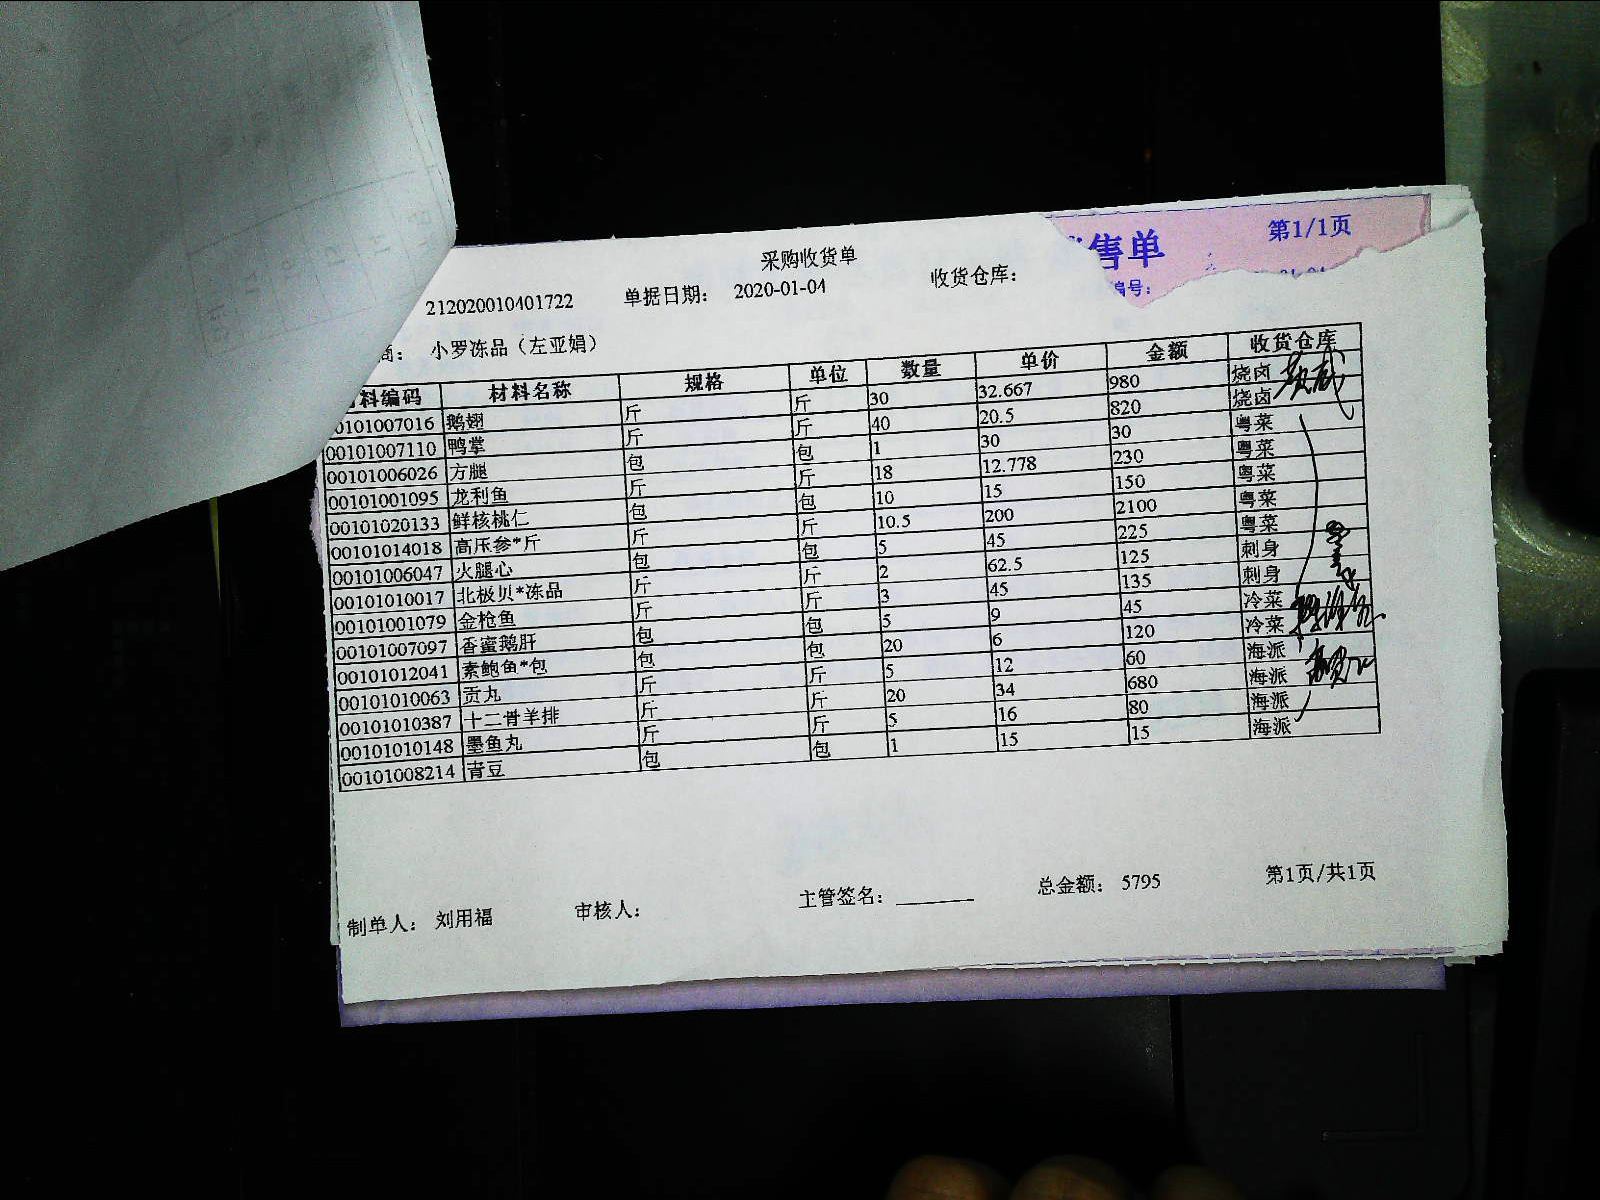 售单
第1/1页
编号:
采购收货单
212020010401722 单据日期: 2020-01-04 收货仓库:
商: 小罗冻品(左亚娟)
料编码 材料名称 规格 单位 数量 单价 金额 收货仓库
0101007016 鹅翅 斤 斤 30 32.667 980 烧卤
00101007110 鸭掌 斤 斤 40 20.5 820 烧卤
00101006026 方腿 包 包 1 30 30 粤菜
00101001095 龙利鱼 斤 斤 18 12.778 230 粤菜
00101020133 鲜核桃仁 包 包 10 15 150 粤菜
00101014018 高压参*斤 斤 斤 10.5 200 2100 粤菜
00101006047 火腿心 包 包 5 45 225 粤菜
00101010017 北极贝*冻品 斤 斤 2 62.5 125 刺身
00101001079 金枪鱼 斤 斤 3 45 135 刺身
00101007097 香蜜鹅肝 包 包 5 9 45 冷菜
00101012041 素鲍鱼*包 包 包 20 6 120 冷菜
00101010063 贡丸 斤 斤 5 12 60 海派
00101010387 十二骨羊排 斤 斤 20 34 680 海派
00101010148 墨鱼丸 斤 斤 5 16 80 海派
00101008214 青豆 包 包 1 15 15 海派
制单人: 刘用福 审核人: 主管签名: 总金额: 5795 第1页/共1页